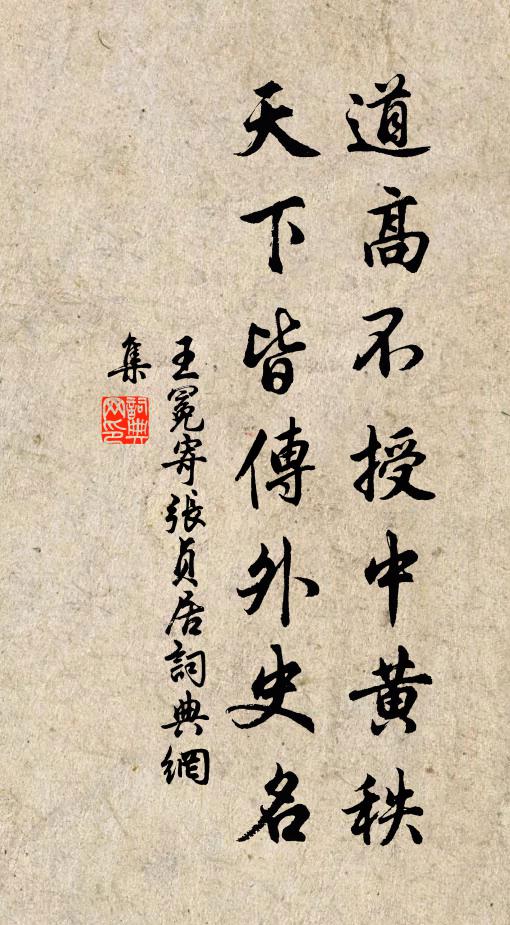 道高不授中黄秩
天下皆傳外史名
王冕寄張貞居詞典網
集
詞典
网印